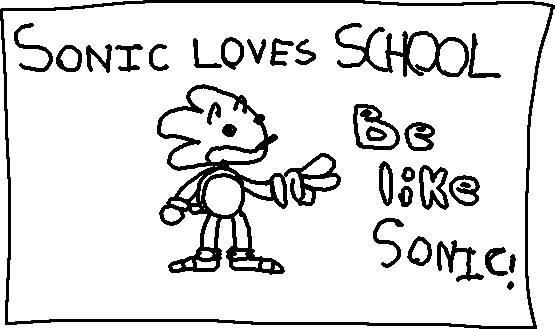 SONIC LOVES SCHOOL
Be
like
SONIC!